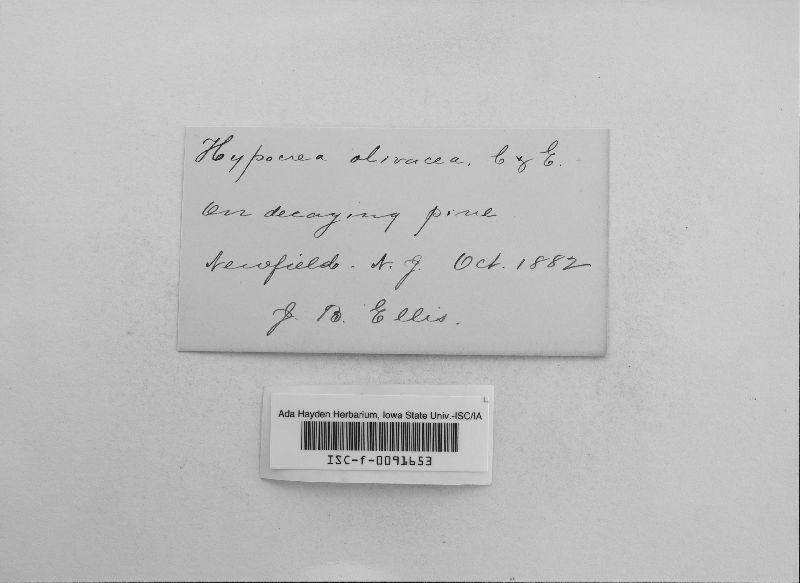 Hypocrea olivacea. C & E.
On decaying pine
Newfield. N. J. Oct. 1882
J. B. Ellis.
Ada Hayden Herbarium, Iowa State Univ.-ISC/IA
ISC-f-0091653